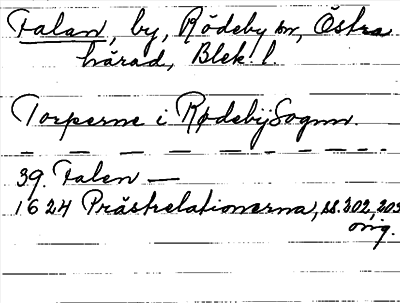 Falan, by, Rödeby sn, Östra
härad, Blek. l.
Torperne i RødebijSognn.
39. Falen —
1624 Prästrelationerna, ss. 202, 203
orig.